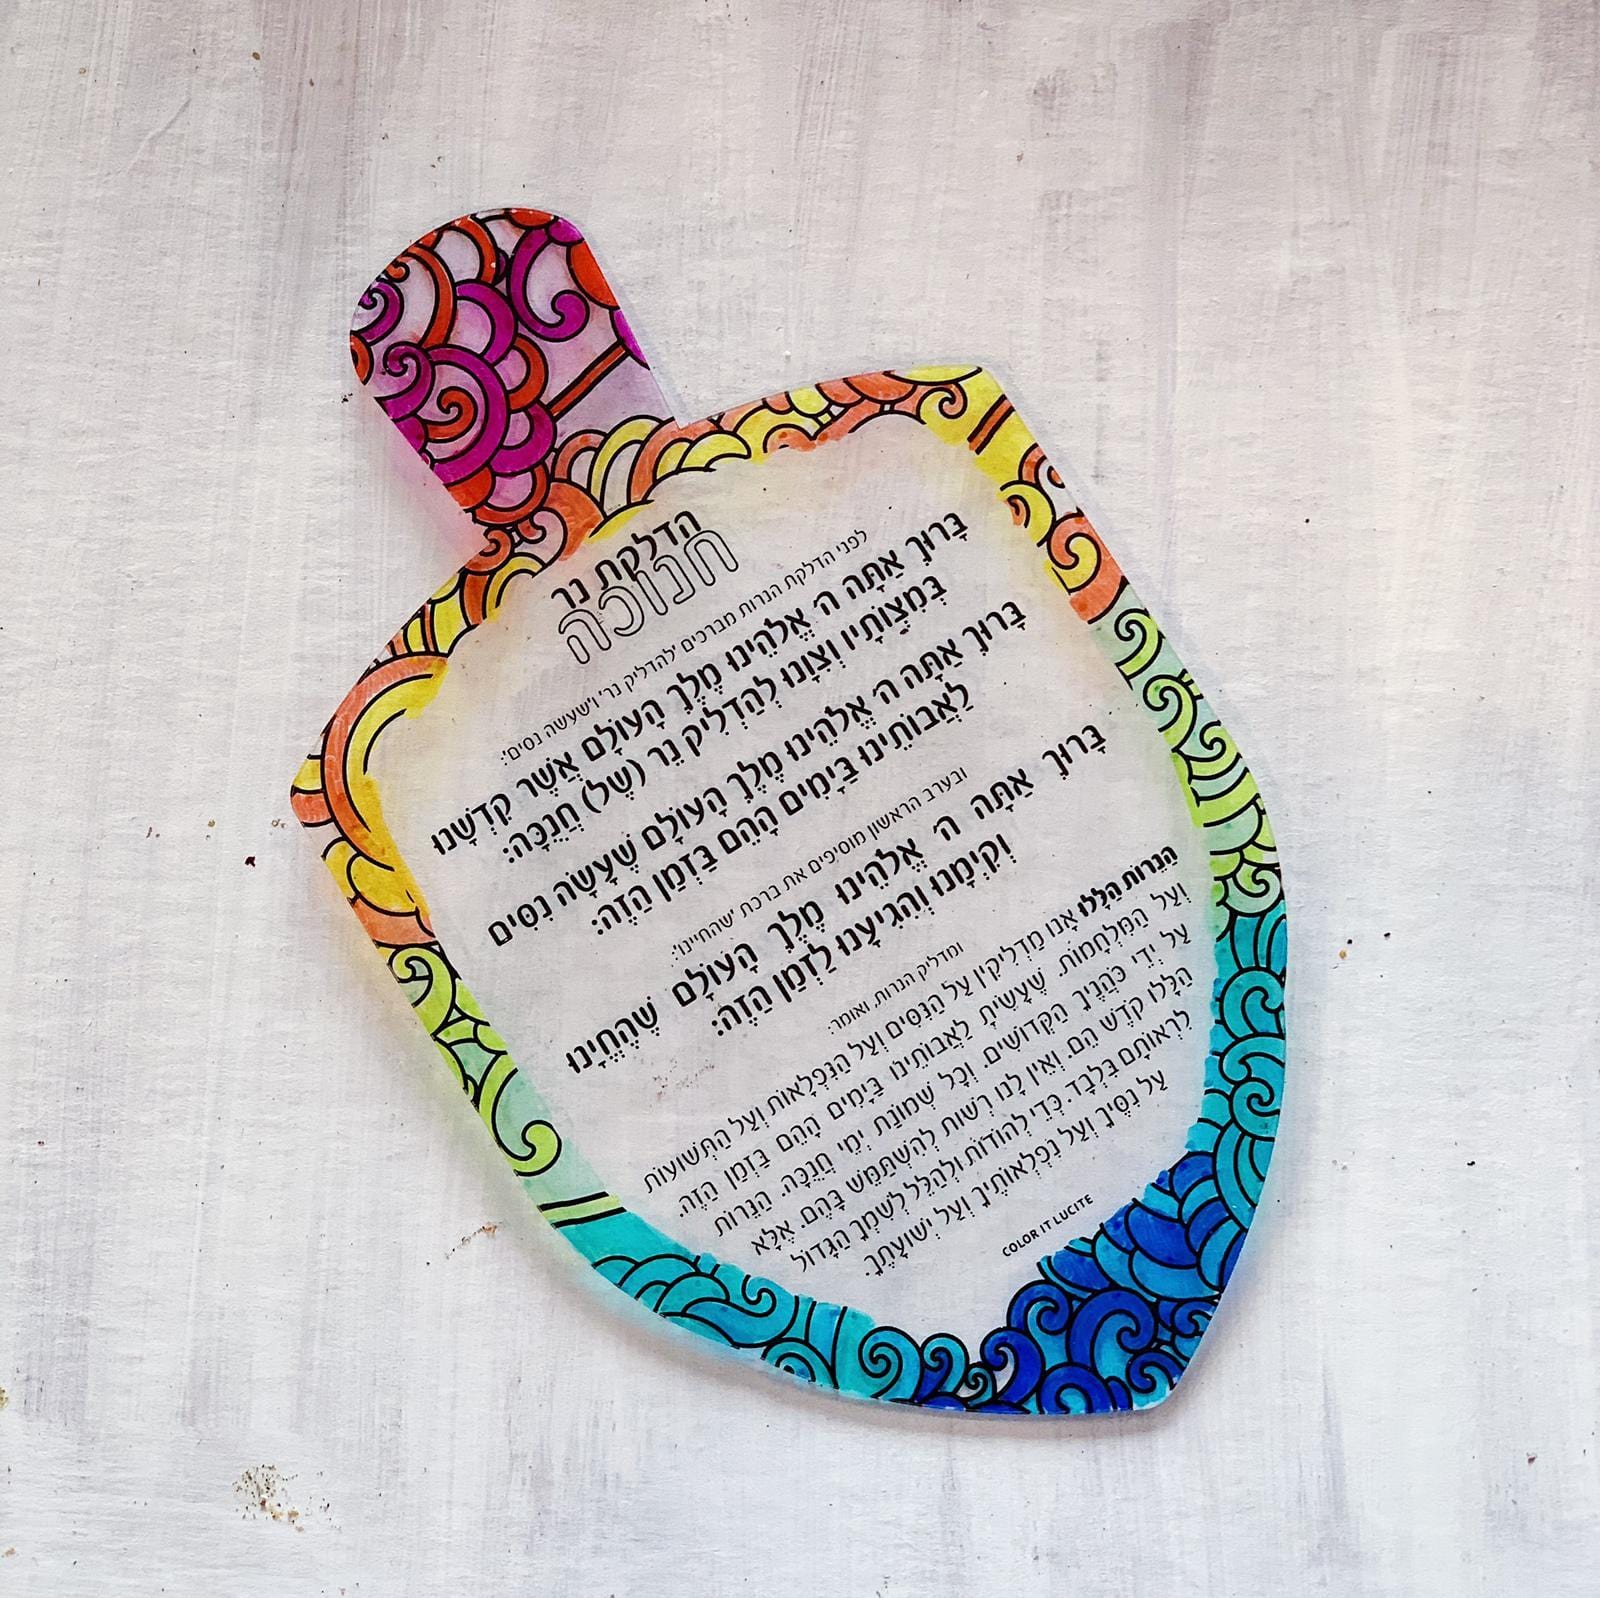 הדלקת נר
חנוכה
לפני הדלקת הנרות מברכים 'להדליק נר' ו'שעשה נסים':
בָּרוּךְ אַתָּה ה' אֱלֹהֵינוּ מֶלֶךְ הָעוֹלָם אֲשֶׁר קִדְּשָׁנוּ
בְּמִצְוֹתָיו וְצִוָּנוּ לְהַדְלִיק נֵר (שֶׁל) חֲנֻכָּה:
בָּרוּךְ אַתָּה ה' אֱלֹהֵינוּ מֶלֶךְ הָעוֹלָם שֶׁעָשָׂה נִסִּים
לַאֲבוֹתֵינוּ בַּיָּמִים הָהֵם בַּזְּמַן הַזֶּה:
ובערב הראשון מוסיפים את ברכת 'שהחיינו':
בָּרוּךְ אַתָּה ה' אֱלֹהֵינוּ מֶלֶךְ הָעוֹלָם שֶׁהֶחֱיָנוּ
וְקִיְּמָנוּ וְהִגִּיעָנוּ לַזְּמַן הַזֶּה:
ומדליק הנרות, ואומר:
הַנֵּרוֹת הַלָּלוּ אָנוּ מַדְלִיקִין עַל הַנִּסִּים וְעַל הַנִּפְלָאוֹת וְעַל הַתְּשׁוּעוֹת
וְעַל הַמִּלְחָמוֹת, שֶׁעָשִׂיתָ לַאֲבוֹתֵינוּ בַּיָּמִים הָהֵם בַּזְּמַן הַזֶּה.
עַל יְדֵי כֹּהֲנֶיךָ הַקְּדוֹשִׁים. וְכָל שְׁמוֹנַת יְמֵי חֲנֻכָּה. הַנֵּרוֹת
הַלָּלוּ קֹדֶשׁ הֵם. וְאֵין לָנוּ רְשׁוּת לְהִשְׁתַּמֵּשׁ בָּהֶם. אֶלָּא
לִרְאוֹתָם בִּלְבָד. כְּדֵי לְהוֹדוֹת וּלְהַלֵּל לְשִׁמְךָ הַגָּדוֹל
עַל נִסֶּיךָ וְעַל נִפְלְאוֹתֶיךָ וְעַל יְשׁוּעָתֶךָ.
COLOR IT LUCITE